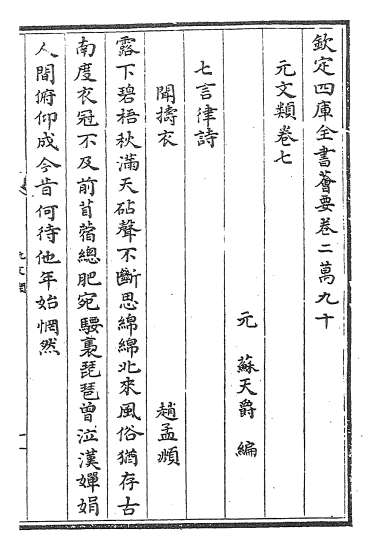 欽定四庫全書薈要卷二萬九十
元文類卷七
元　蘇天爵　編
七言律詩
聞擣衣　趙孟頫
露下碧梧秋滿天砧聲不斷思綿綿北來風俗猶存古
南度衣冠不及前苜蓿總肥宛騕褭琵琶曾泣漢嬋娟
人間俯仰成今昔何待他年始惘然